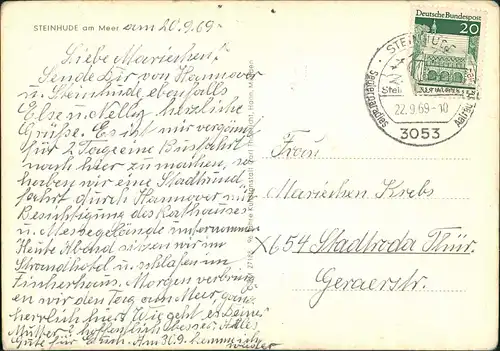 STEINHUDE am Meer am 20.9.69.
Liebe Mariechen!
Sende Dir von Hannover
u. Steinhude ebenfalls
Else u. Nelly herzliche
Grüße. Es ist mir vergönnt
für 2 Tage eine Busfahrt
nach hier zu machen, so
haben wir eine Stadtrund
fahrt durch Hannover mit
Besichtigung des Rathauses
u. Messegelände unternommen
Heute Abend sitzen wir im
Strandhotel u. schlafen im
Fischerhaus. Morgen verbring
en wir den Tag am Meer ganz
herrlich hier! Wie geht es Deiner
Mutter? hoffentlich besser. Alles
Gute für Euch. Am 30.9. komme ich
wieder
Deutsche Bundespost
20
STEINHUDE
Seglerparadies
22.9.69-10
3053
Frau
Mariechen Krebs
X 654 Stadtroda Thür.
Geraerstr.